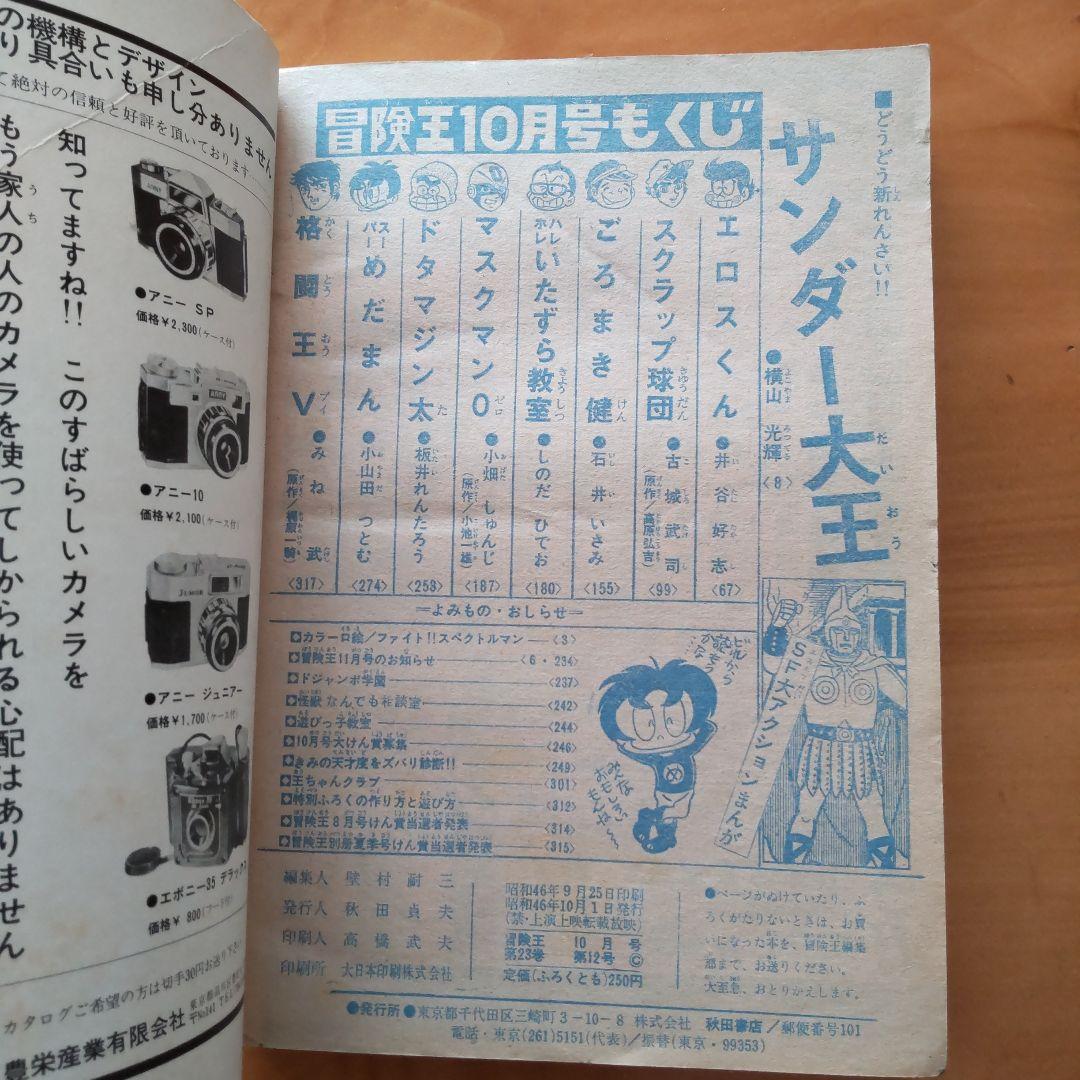 の機構とデザイン
り具合いも申し分ありません
て絶対の信頼と好評を頂いております
知ってますね!! このすばらしいカメラを
もう家人の人のカメラを使ってしかられる心配はありません
●アニー SP
価格¥2,300(ケース付)
●アニー10
価格¥2,100(ケース付)
●アニー ジュニアー
価格¥1,700(ケース付)
●エボニー35 デラックス
価格¥ 800(フード付)
カタログご希望の方は切手30円お送り下さい
豊栄産業有限会社
冒険王10月号もくじ
■どうどう新れんさい!!
サンダー大王
●横山 光輝
〈8〉
SF大アクションまんが
エロスくん●井谷好志〈67〉
スクラップ球団●古城武司(原作/高原弘吉)〈99〉
ごろまき健●石井いさみ〈155〉
ハレホレいたずら教室●しのだ ひでお〈180〉
マスクマン0●小畑しゅんじ(原作/小池一雄)〈187〉
ドタマジン太●板井れんたろう〈258〉
スーパーめだまん●小山田 つとむ〈274〉
格闘王V●みね武(原作/梶原一騎)〈317〉
=よみもの・おしらせ=
カラー口絵/ファイト!!スペクトルマン〈3〉
冒険王11月号のお知らせ〈6・234〉
ドジャンボ学園〈237〉
怪獣なんでも相談室〈242〉
遊びっ子教室〈244〉
10月号大けん賞募集〈246〉
きみの天才度をズバリ診断!!〈249〉
王ちゃんクラブ〈301〉
特別ふろくの作り方と遊び方〈312〉
冒険王8月号けん賞当選者発表〈314〉
冒険王別册夏季号けん賞当選者発表〈315〉
編集人 壁村耐三
発行人 秋田貞夫
印刷人 高橋武夫
印刷所 大日本印刷株式会社
昭和46年9月25日印刷
昭和46年10月1日発行
(禁・上演上映転載放映)
冒険王 10月号
第23巻 第12号 ©
定価(ふろくとも)250円
●ページがぬけていたり、ふ
ろくがたりないときは、お買
いになった本を、冒険王編集
部まで、お送りください。
大至急、おとりかえします。
●発行所●東京都千代田区三崎町3-10-8 株式会社 秋田書店/郵便番号101
電話・東京(261)5151(代表)/振替(東京・99353)